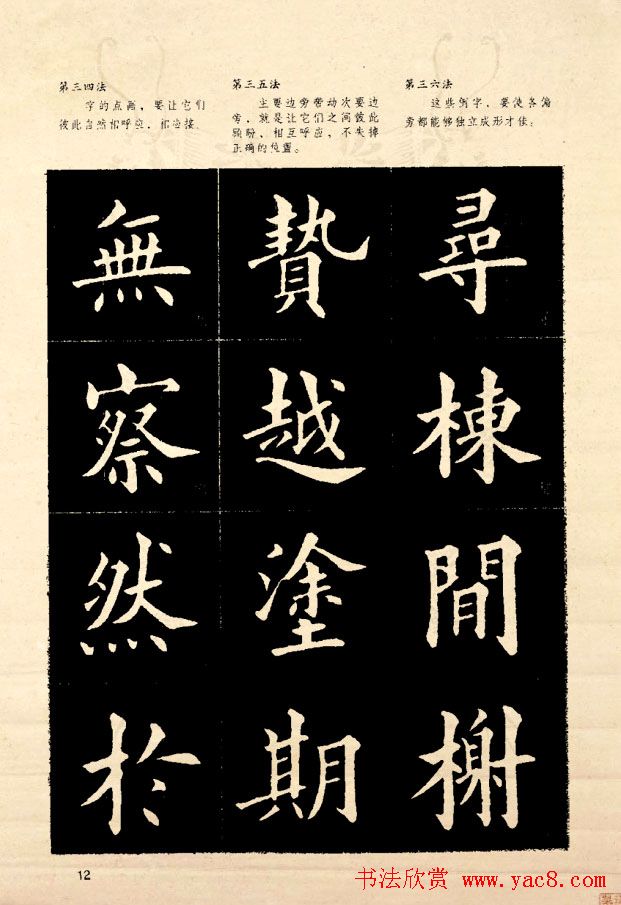 第三四法
字的点画，要让它们
彼此自然相呼应，相应接。
第三五法
主要边旁带动次要边
旁，就是让它们之间彼此
顾盼、相互呼应，不失掉
正确的位置。
第三六法
这些例字，要使各偏
旁都能够独立成形才佳。
無 贄 尋
察 越 棟
然 塗 間
於 期 榭
12
书法欣赏 www.yac8.com